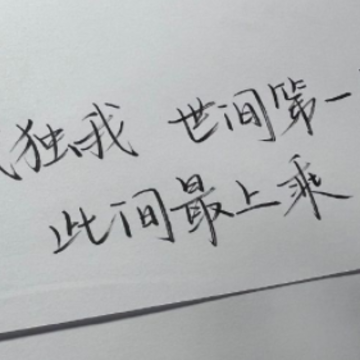 独我 世间第一
此间最上乘